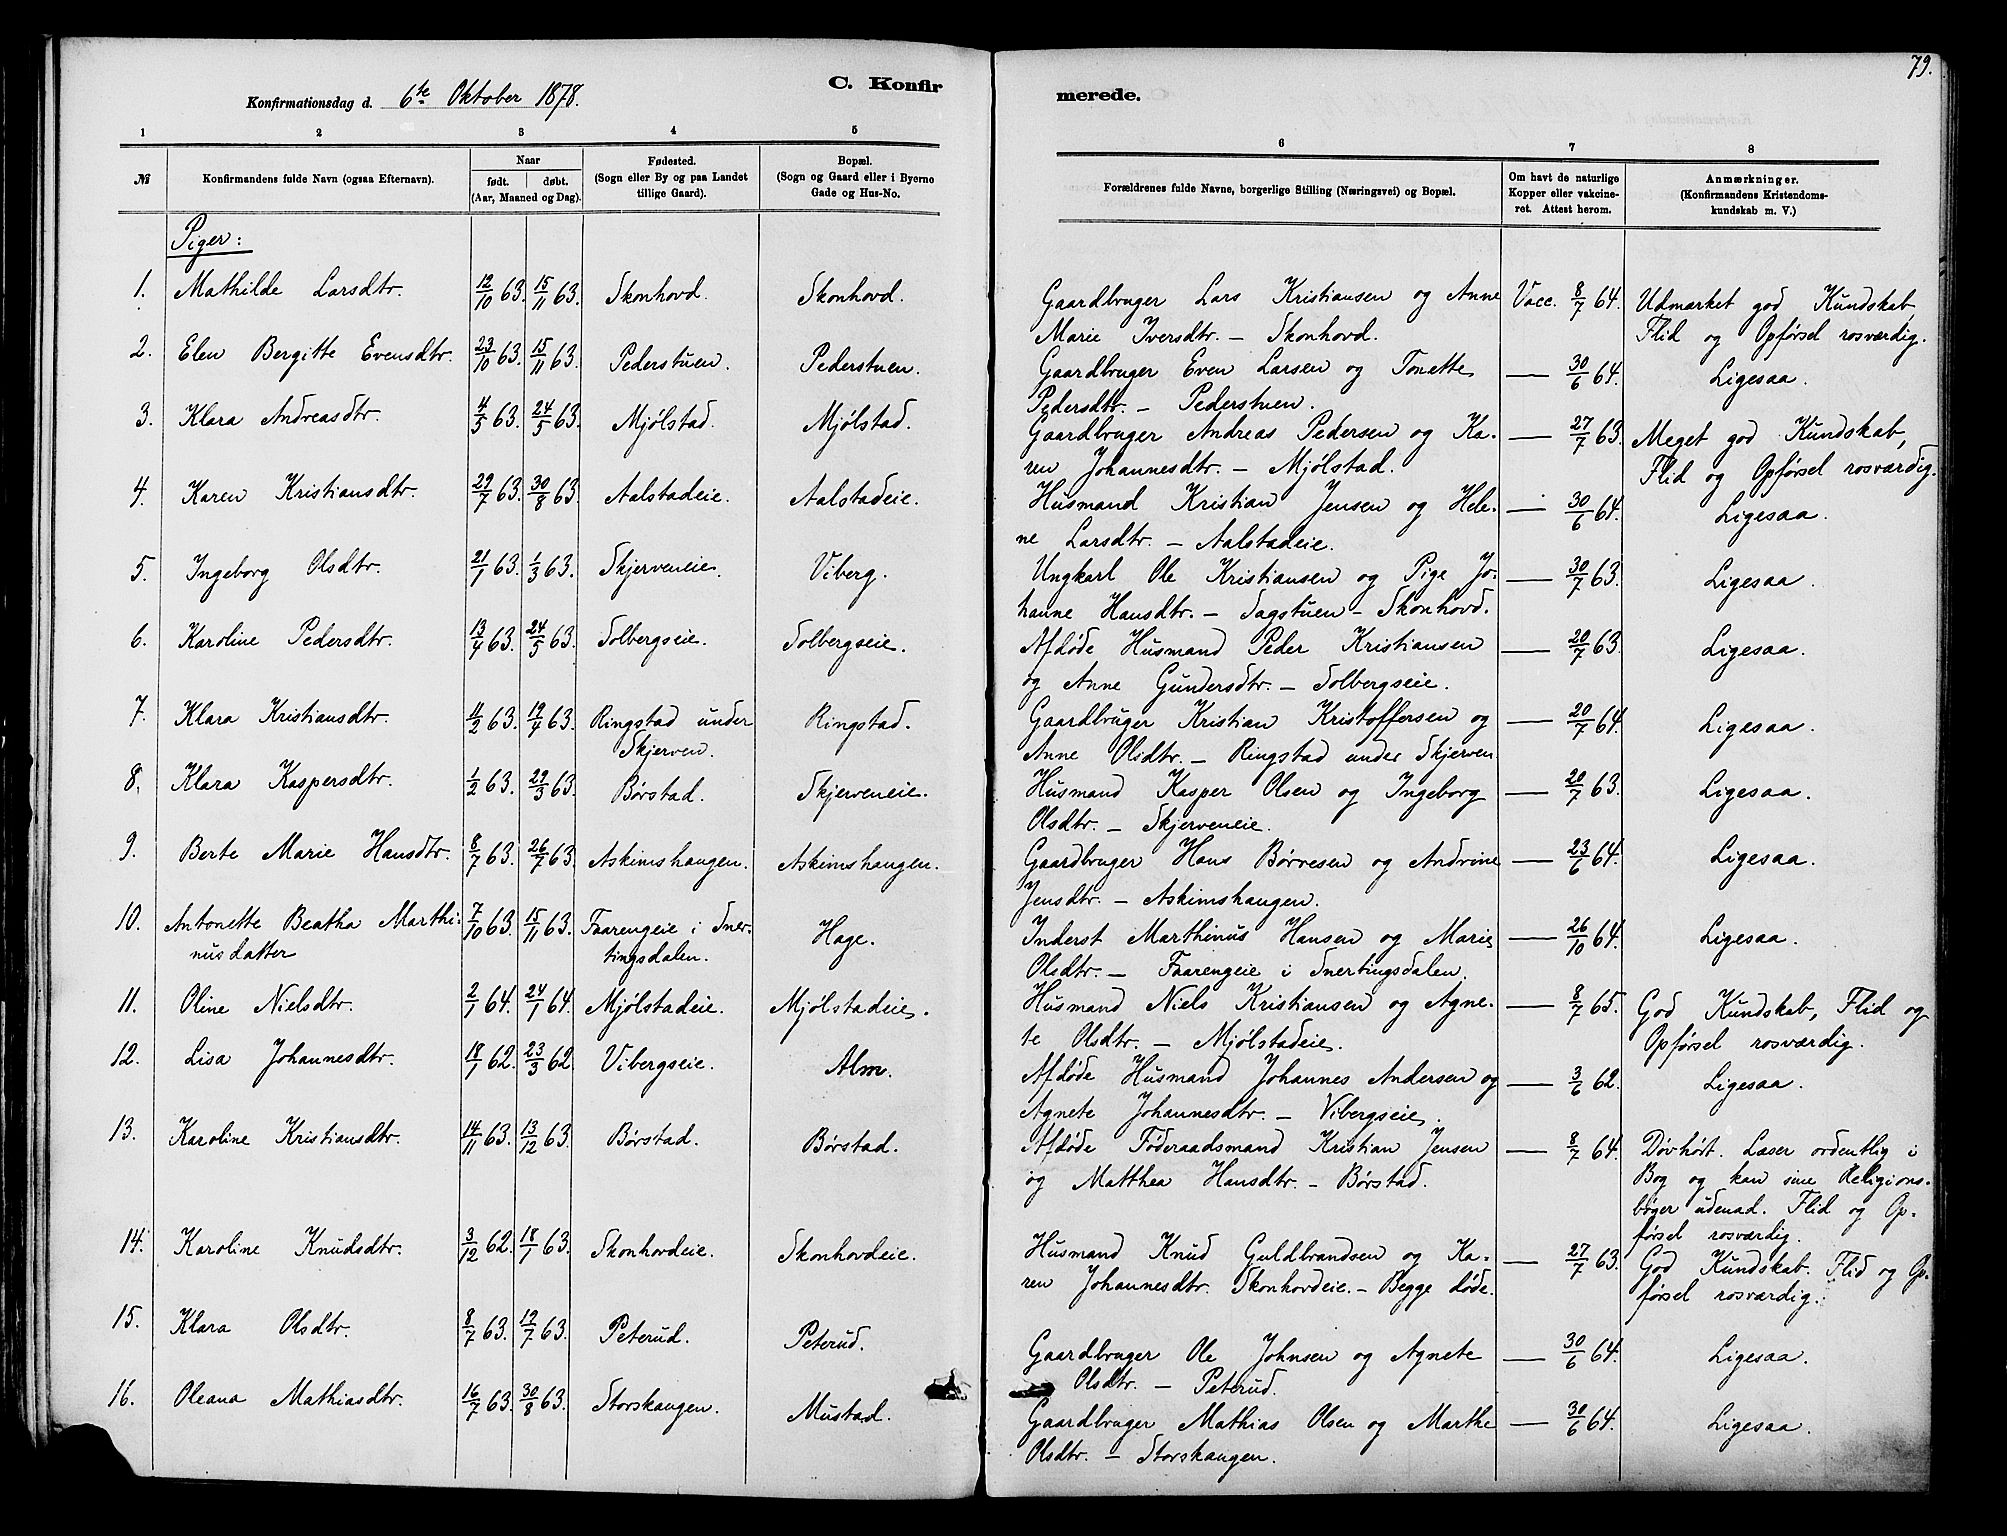 79.
Konfirmationsdag d. 6te Oktober 1878.
C. Konfir
merede.
1 2 3 4 5 6 7 8
№
Konfirmandens fulde Navn (ogsaa Efternavn).
Naar
født. døbt.
(Aar, Maaned og Dag).
Fødested.
(Sogn eller By og paa Landet
tillige Gaard).
Bopæl.
(Sogn og Gaard eller i Byerne
Gade og Hus-No.
Forældrenes fulde Navne, borgerlige Stilling (Næringsvei) og Bopæl.
Om havt de naturlige
Kopper eller vakcine-
ret. Attest herom.
Anmærkninger.
(Konfirmandens Kristendoms-
kundskab m. V.)
Piger:
1. Mathilde Larsdtr. 12/10 63. 15/11 63. Skonhovd. Skonhovd. Gaardbruger Lars Kristiansen og Anne Vacc. 8/7 64. Udmærket god Kundskab,
Marie Iversdtr. – Skonhovd. Flid og Opførsel rosværdig.
2. Elen Bergitte Evensdtr. 23/10 63. 15/11 63. Pederstuen. Pederstuen. Gaardbruger Even Larsen og Tonette — 30/6 64. Ligesaa.
Pedersdtr. – Pederstuen.
3. Klara Andreasdtr. 4/5 63. 24/5 63. Mjølstad. Mjølstad. Gaardbruger Andreas Pedersen og Ka- — 27/7 63. Meget god Kundskab,
ren Johannesdtr. – Mjølstad. Flid og Opførsel rosværdig.
4. Karen Kristiansdtr. 29/7 63. 30/8 63. Aalstadeie. Aalstadeie. Husmand Kristian Jensen og Hele- — 30/6 64. Ligesaa.
ne Larsdtr. – Aalstadeie.
5. Ingeborg Olsdtr. 21/1 63. 1/3 63. Skjerveneie. Viberg. Ungkarl Ole Kristiansen og Pige Jo- — 30/7 63. Ligesaa.
hanne Hansdtr. – Sagstuen – Skonhovd.
6. Karoline Pedersdtr. 13/4 63. 24/5 63. Solbergseie. Solbergseie. Afdøde Husmand Peder Kristiansen — 20/7 63. Ligesaa.
og Anne Gundersdtr. – Solbergseie.
7. Klara Kristiansdtr. 11/2 63. 19/4 63. Ringstad under Ringstad. Gaardbruger Kristian Kristoffersen og — 20/7 64. Ligesaa.
Skjerven. Anne Olsdtr. – Ringstad under Skjerven
8. Klara Kaspersdtr. 1/2 63. 29/3 63. Børstad. Skjerveneie. Husmand Kasper Olsen og Ingeborg — 20/7 63. Ligesaa.
Olsdtr. – Skjerveneie.
9. Berte Marie Hansdtr. 8/7 63. 26/7 63. Askimshaugen. Askimshaugen. Gaardbruger Hans Børresen og Andrine — 23/6 64. Ligesaa.
Jensdtr. – Askimshaugen.
10. Antonette Beatha Marthi- 7/10 63. 15/11 63. Faarengeie i Sner- Hage. Inderst Marthinus Hansen og Marie — 26/10 64. Ligesaa.
nusdatter tingsdalen. Olsdtr. – Faarengeie i Snertingsdalen.
11. Oline Nielsdtr. 2/1 64. 24/1 64. Mjølstadeie. Mjølstadeie. Husmand Niels Kristiansen og Agne- — 8/7 65. God Kundskab, Flid og
te Olsdtr. – Mjølstadeie. Opførsel rosværdig.
12. Lisa Johannesdtr. 18/1 62. 23/3 62. Vibergseie. Alm. Afdøde Husmand Johannes Andersen og — 3/6 62. Ligesaa.
Agnete Johannesdtr. – Vibergseie.
13. Karoline Kristiansdtr. 14/11 63. 13/12 63. Børstad. Børstad. Afdøde Føderaadsmand Kristian Jensen — 8/7 64. Døvhørt. Læser ordentlig i
og Matthea Hansdtr. – Børstad. Bog og kan sine Religions-
bøger udenad. Flid og Op-
førsel rosværdig.
14. Karoline Knudsdtr. 3/12 62. 18/1 63. Skonhovdeie. Skonhovdeie. Husmand Knud Guldbrandsen og Ka- — 27/7 63. God Kundskab. Flid og Op-
ren Johannesdtr. Skonhovdeie. – Begge døde. førsel rosværdig.
15. Klara Olsdtr. 8/7 63. 19/7 63. Peterud. Peterud. Gaardbruger Ole Johnsen og Agnete — 30/6 64. Ligesaa.
Olsdtr. – Peterud.
16. Oleana Mathiasdtr. 16/7 63. 30/8 63. Storskaugen. Mustad. Gaardbruger Mathias Olsen og Marthe — 30/6 64. Ligesaa.
Olsdtr. – Storskaugen.